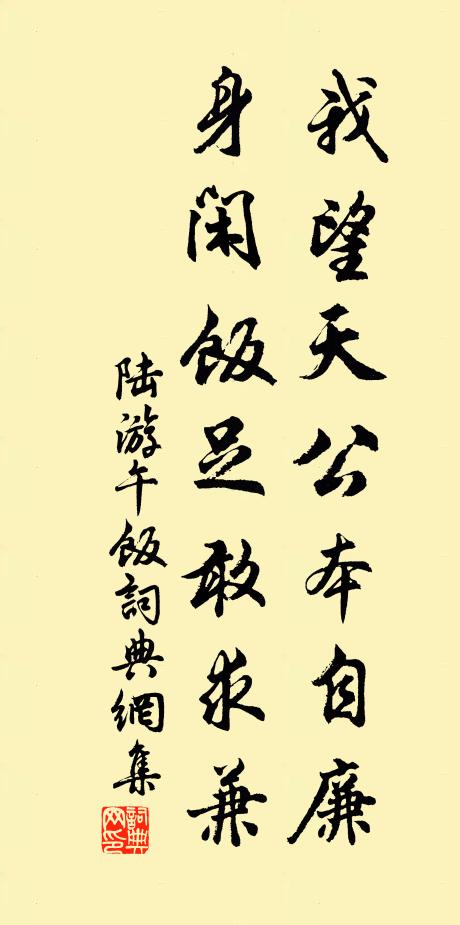 我望天公本自廉
身闲飯足敢求兼
陆游午飯詞典網集
詞典网印